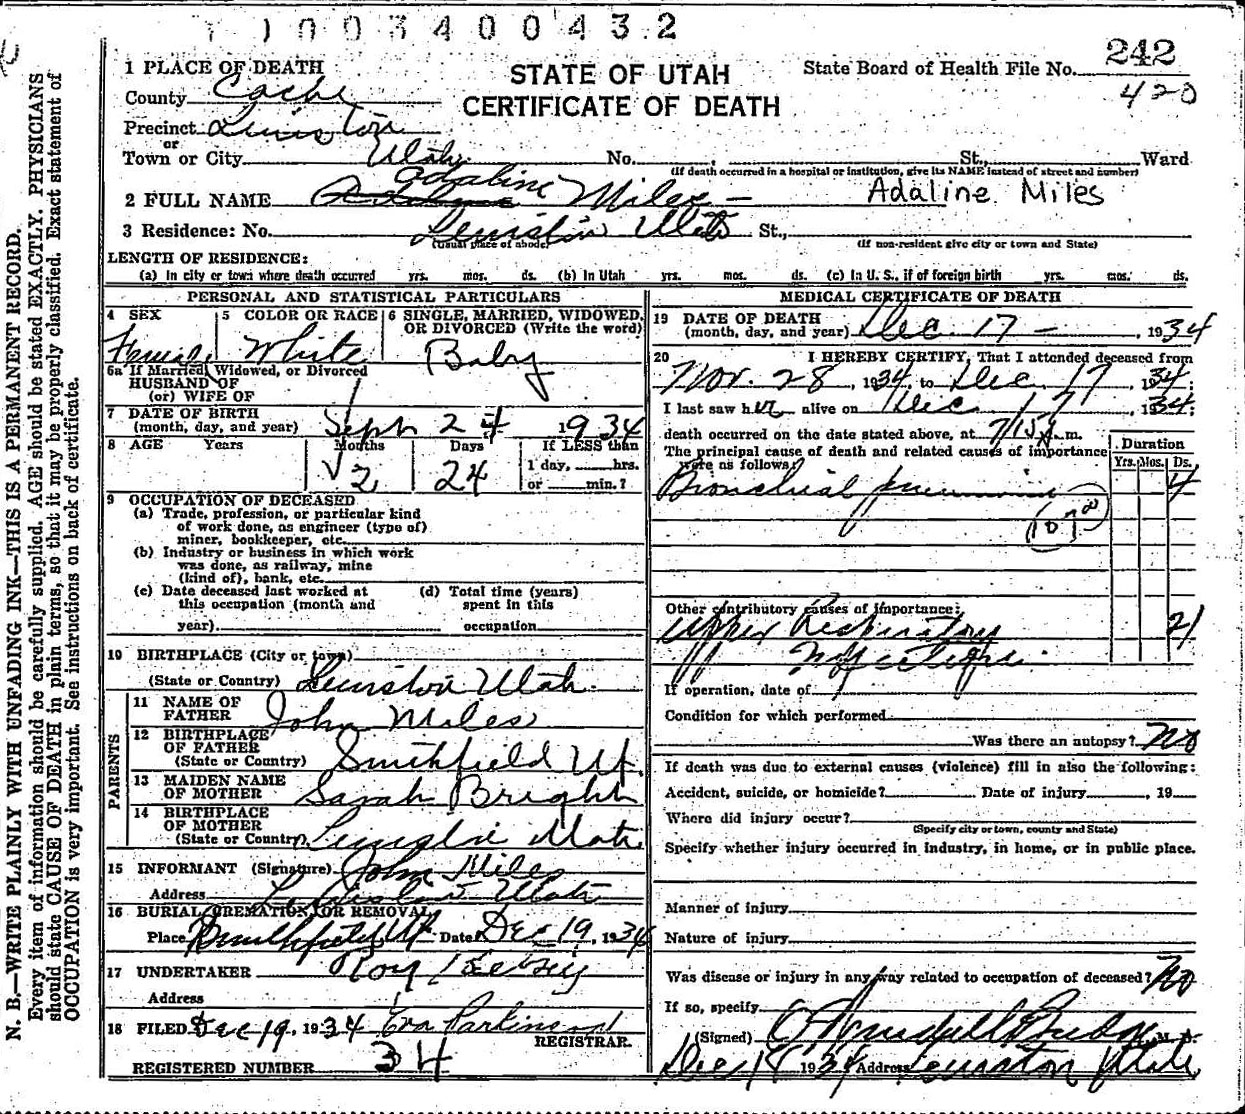 1003400432
242
1 PLACE OF DEATH
STATE OF UTAH
State Board of Health File No.
County Cache
CERTIFICATE OF DEATH
420
Precinct Lewiston
or
Town or City Utah No. , St., Ward
(If death occurred in a hospital or institution, give its NAME instead of street and number)
Adaline
2 FULL NAME Miles — Adaline Miles
3 Residence: No. Lewiston Utah St.,
(Usual place of abode) (If non-resident give city or town and State)
LENGTH OF RESIDENCE:
(a) In city or town where death occurred yrs. mos. ds. (b) In Utah yrs. mos. ds. (c) In U. S., if of foreign birth yrs. mos. ds.
PERSONAL AND STATISTICAL PARTICULARS
4 SEX 5 COLOR OR RACE 6 SINGLE, MARRIED, WIDOWED, OR DIVORCED (Write the word)
Female White Baby
6a If Married, Widowed, or Divorced
HUSBAND OF
(or) WIFE OF
7 DATE OF BIRTH
(month, day, and year) Sept 24 1934
8 AGE Years Months Days If LESS than
2 24 1 day, hrs.
or min.?
9 OCCUPATION OF DECEASED
(a) Trade, profession, or particular kind
of work done, as engineer (type of)
miner, bookkeeper, etc.
(b) Industry or business in which work
was done, as railway, mine
(kind of), bank, etc.
(c) Date deceased last worked at (d) Total time (years)
this occupation (month and spent in this
year) occupation
10 BIRTHPLACE (City or town)
(State or Country) Lewiston Utah.
PARENTS
11 NAME OF
FATHER John Miles
12 BIRTHPLACE
OF FATHER
(State or Country) Smithfield Ut.
13 MAIDEN NAME
OF MOTHER Sarah Bright
14 BIRTHPLACE
OF MOTHER
(State or Country) Lewiston Utah.
15 INFORMANT (Signature) John Miles
Address Lewiston Utah
16 BURIAL, CREMATION, OR REMOVAL
Place Smithfield Ut Date Dec 19, 1934
17 UNDERTAKER Roy
Address
18 FILED Dec 19, 1934 Eva Parkinson
REGISTRAR.
REGISTERED NUMBER 34
MEDICAL CERTIFICATE OF DEATH
19 DATE OF DEATH
(month, day, and year) Dec 17 — , 1934
20 I HEREBY CERTIFY, That I attended deceased from
Nov. 28, 1934, to Dec. 17, 1934;
I last saw her alive on Dec 17, 1934;
death occurred on the date stated above, at 7/15 A.m.
The principal cause of death and related causes of importance
were as follows:
Duration
Yrs. Mos. Ds.
Bronchial pneumonia 4
107a
Other contributory causes of importance:
Upper Respiratory 21
Infection.
If operation, date of
Condition for which performed
Was there an autopsy? No
If death was due to external causes (violence) fill in also the following:
Accident, suicide, or homicide? Date of injury , 19
Where did injury occur?
(Specify city or town, county and State)
Specify whether injury occurred in industry, in home, or in public place.
Manner of injury
Nature of injury
Was disease or injury in any way related to occupation of deceased? No
If so, specify
(Signed) M. D.
Dec 18 1934 Address Lewiston Utah
N. B.—WRITE PLAINLY WITH UNFADING INK—THIS IS A PERMANENT RECORD.
Every item of information should be carefully supplied. AGE should be stated EXACTLY. PHYSICIANS
should state CAUSE OF DEATH in plain terms, so that it may be properly classified. Exact statement of
OCCUPATION is very important. See instructions on back of certificate.